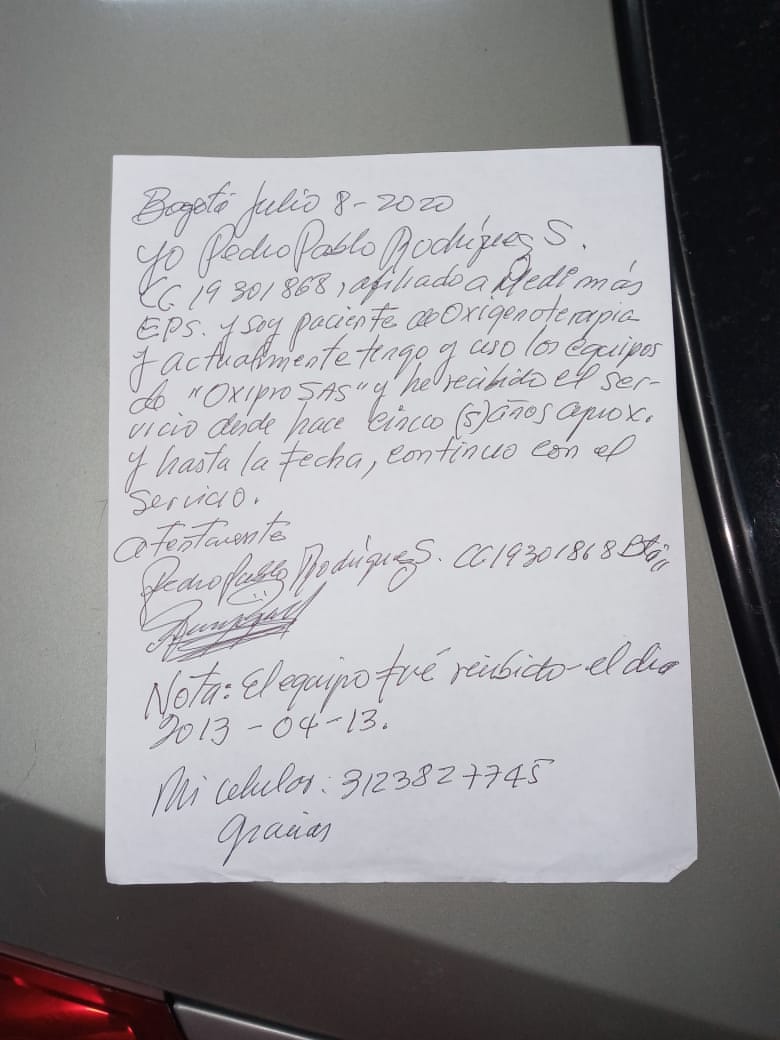 Bogotá Julio 8-2020
Yo Pedro Pablo Rodríguez S.
CC 19301868, afiliado a Medimás
EPS. y soy paciente de Oxigenoterapia
y actualmente tengo y uso los equipos
de "OXIPRO SAS" y he recibido el ser-
vicio desde hace cinco (5) años aprox.
y hasta la fecha, continuo con el
servicio.
Atentamente
Pedro Pablo Rodríguez S. CC 19301868 Btá
Nota: El equipo fué recibido el dia
2013-04-13.
Mi celular: 3123827745
Gracias